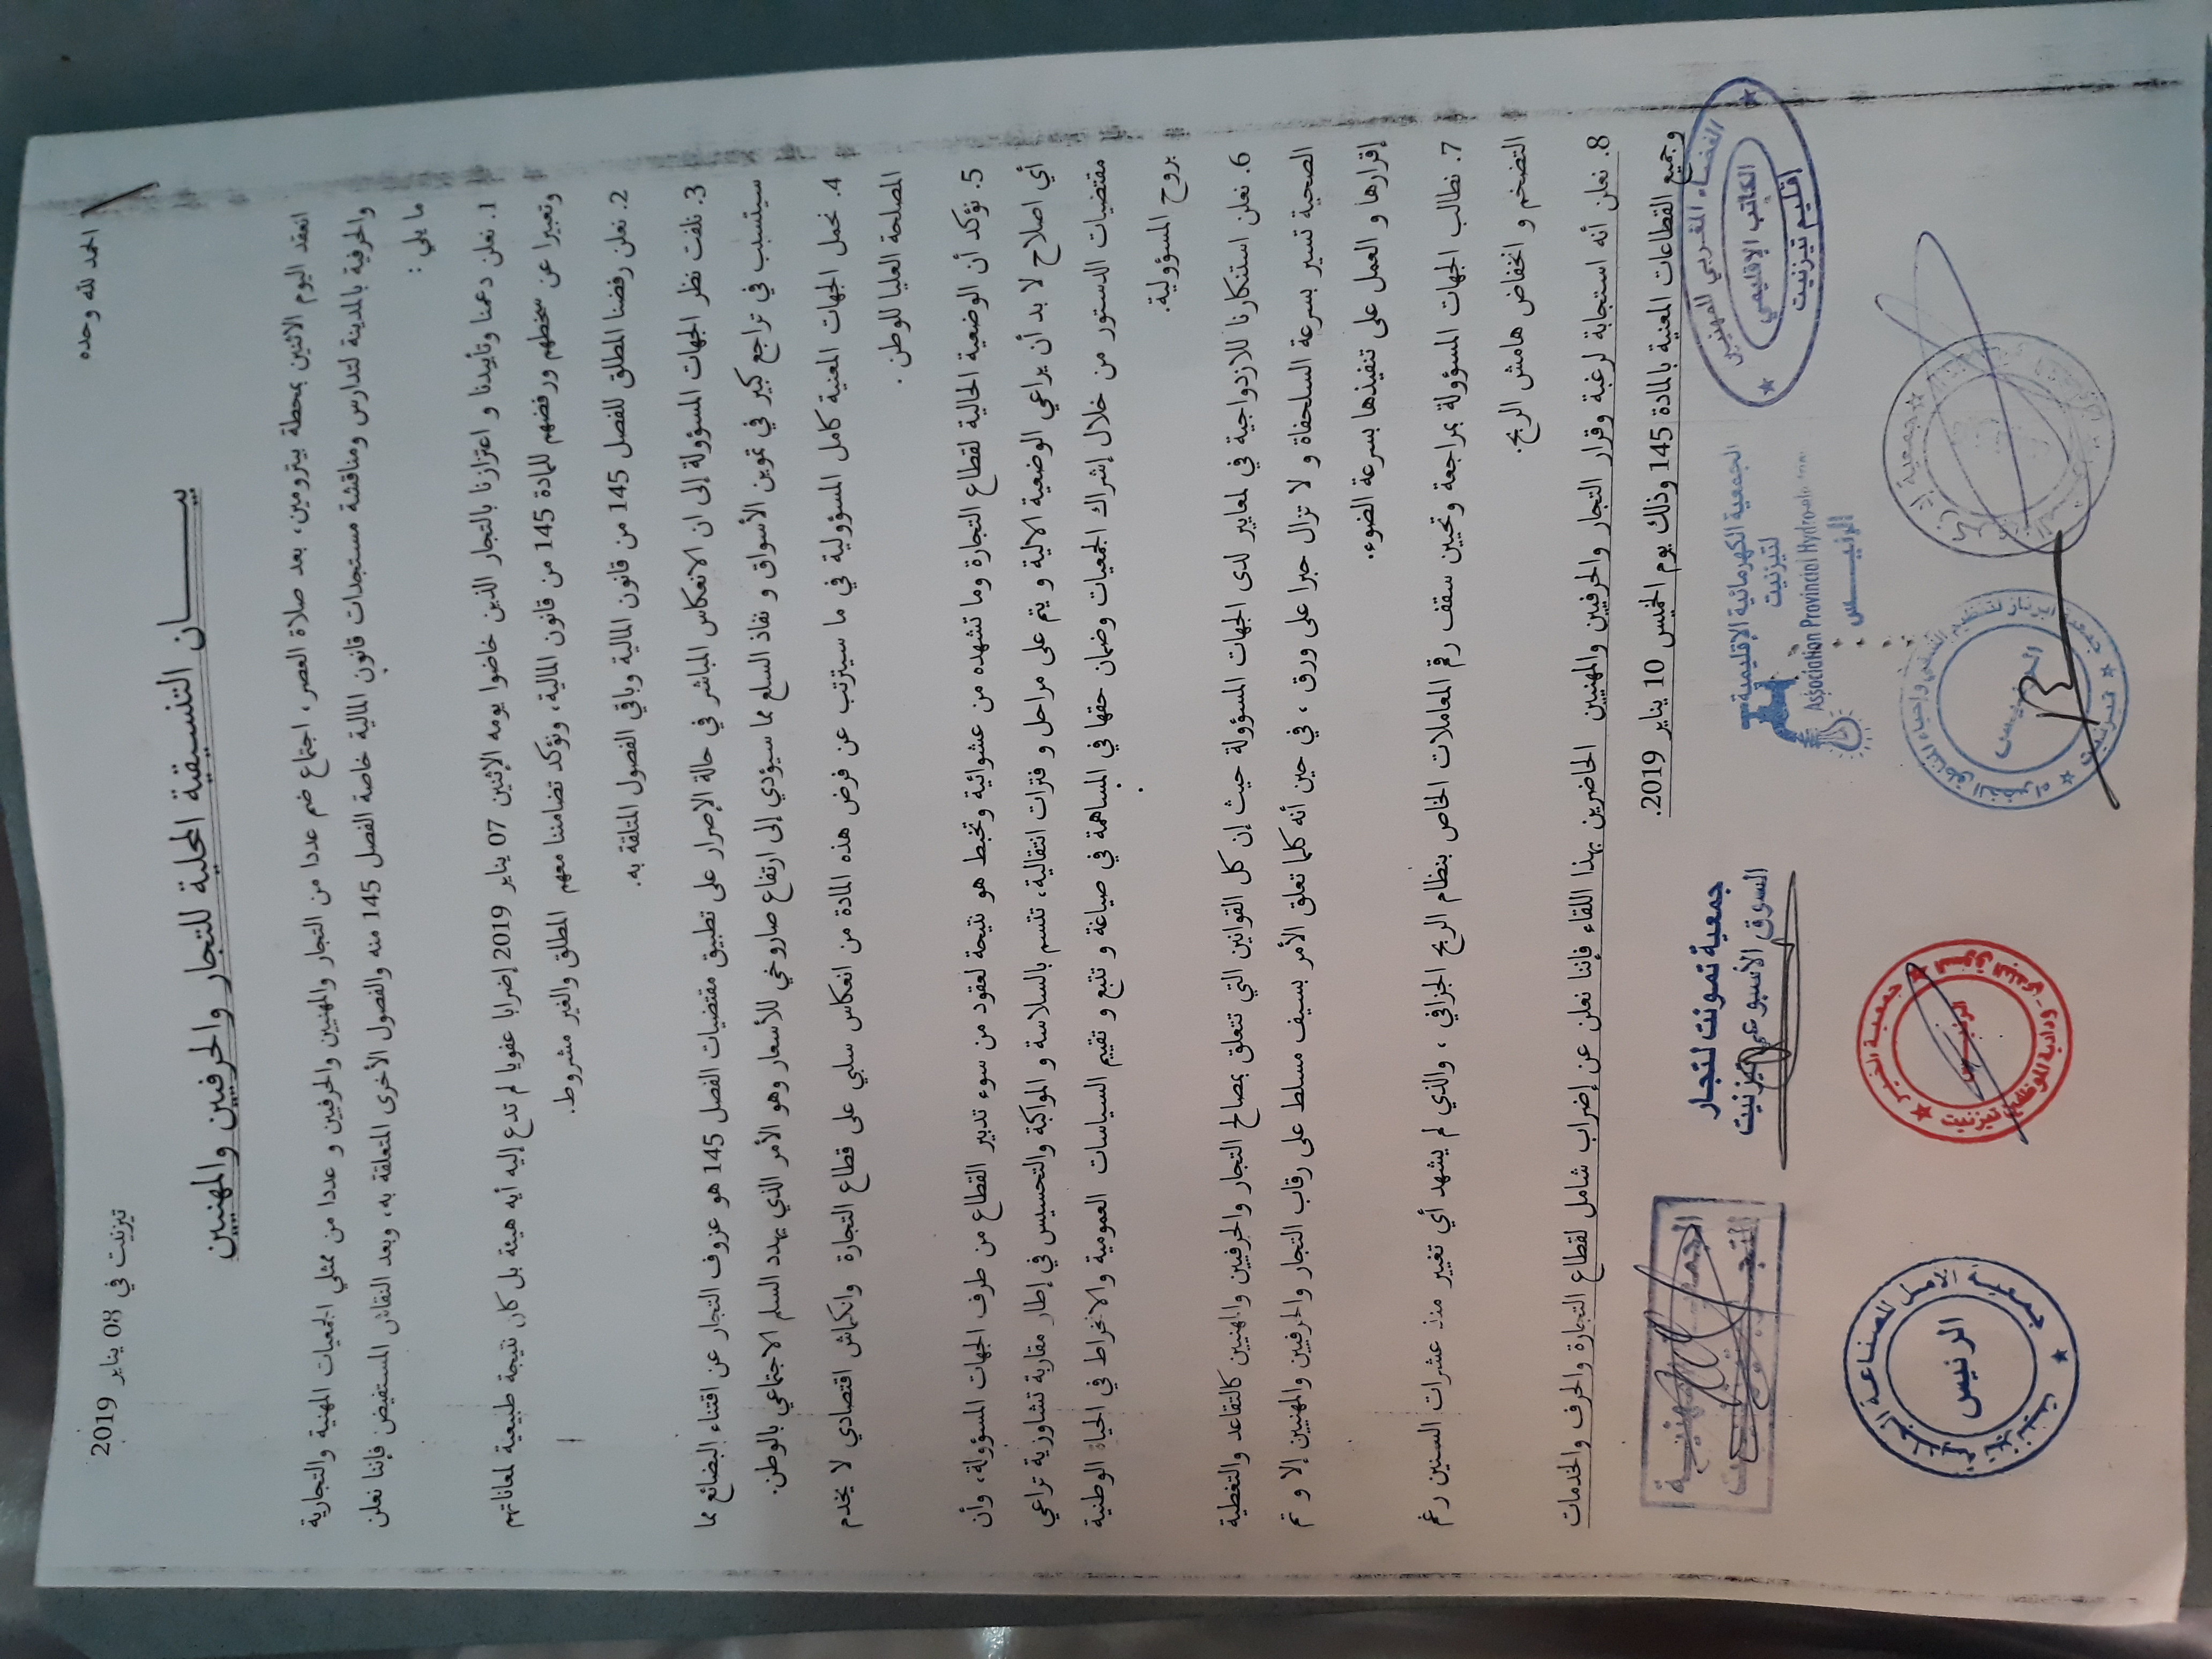 الحمد لله وحده
تيزنيت في 08 يناير 2019
بيـــــــان التنسيقية المحلية للتجار والحرفيين والمهنيين
انعقد اليوم الاثنين بمحطة بيترومين، بعد صلاة العصر، اجتماع ضم عددا من التجار والمهنيين والحرفيين و عددا من ممثلي الجمعيات المهنية والتجارية
والحرفية بالمدينة لتدارس ومناقشة مستجدات قانون المالية خاصة الفصل 145 منه والفصول الأخرى المتعلقة به، وبعد النقاش المستفيض فإننا نعلن
ما يلي :
1. نعلن دعمنا وتأييدنا و اعتزازنا بالتجار الذين خاضوا يومه الإثنين 07 يناير 2019 إضرابا عفويا لم تدع إليه أيه هيئة بل كان نتيجة طبيعية لمعاناتهم
وتعبيرا عن سخطهم ورفضهم للمادة 145 من قانون المالية، ونؤكد تضامننا معهم المطلق والغير مشروط.
2. نعلن رفضنا المطلق للفصل 145 من قانون المالية وباقي الفصول المتلقة به.
3. نلفت نظر الجهات المسؤولة إلى ان الانعكاس المباشر في حالة الإصرار على تطبيق مقتضيات الفصل 145 هو عزوف التجار عن اقتناء البضائع مما
سيتسبب في تراجع كبير في تموين الأسواق و نفاذ السلع مما سيؤدي إلى ارتفاع صاروخي للأسعار وهو الأمر الذي يهدد السلم الاجتماعي بالوطن.
4. نحمل الجهات المعنية كامل المسؤولية في ما سيترتب عن فرض هذه المادة من انعكاس سلبي على قطاع التجارة وانكماش اقتصادي لا يخدم
المصلحة العليا للوطن .
5. نؤكد أن الوضعية الحالية لقطاع التجارة وما تشهده من عشوائية وتخبط هو نتيجة لعقود من سوء تدبير القطاع من طرف الجهات المسؤولة، وأن
أي اصلاح لا بد أن يراعي الوضعية الالية و يتم على مراحل و فترات انتقالية، تتسم بالسلاسة و المواكبة والتحسيس في إطار مقاربة تشاورية تراعي
مقتضيات الدستور من خلال إشراك الجمعيات وضمان حقها في المساهمة في صياغة و تتبع و تقييم السياسات العمومية والانخراط في الحياة الوطنية
بروح المسؤولية.
6. نعلن استنكارنا للازدواجية في لمعايير لدى الجهات المسؤولة حيث إن كل القوانين التي تتعلق بمصالح التجار والحرفيين والمهنيين كالتقاعد والتغطية
الصحية تسير بسرعة السلحفاة و لا تزال حبرا على ورق ، في حين أنه كلما تعلق الأمر بسيف مسلط على رقاب التجار والحرفيين والمهنيين إلا و تم
إقرارها و العمل على تنفيذها بسرعة الضوء.
7. نطالب الجهات المسؤولة بمراجعة وتحيين سقف رقم المعاملات الخاص بنظام الربح الجزافي ، والذي لم يشهد أي تغيير منذ عشرات السنين رغم
التضخم و انخفاض هامش الربح.
8. نعلن أنه استجابة لرغبة وقرار التجار والحرفيين والمهنيين الحاضرين بهذا اللقاء فإننا نعلن عن إضراب شامل لقطاع التجارة والحرف والخدمات
وجميع القطاعات المعنية بالمادة 145 وذلك يوم الخميس 10 يناير 2019.
الفضاء المغربي للمهنيين
الكاتب الإقليمي
إقليم تيزنيت
الجمعية الكهرمائية الإقليمية
لتيزنيت
Association Provincial
الرئيـــــس
جمعية تمونت لتجار
السوق الأسبوعي تيزنيت
المهنيـة
جمعية
الرئيس
جمعية الخير
الرئيس
الرئيس